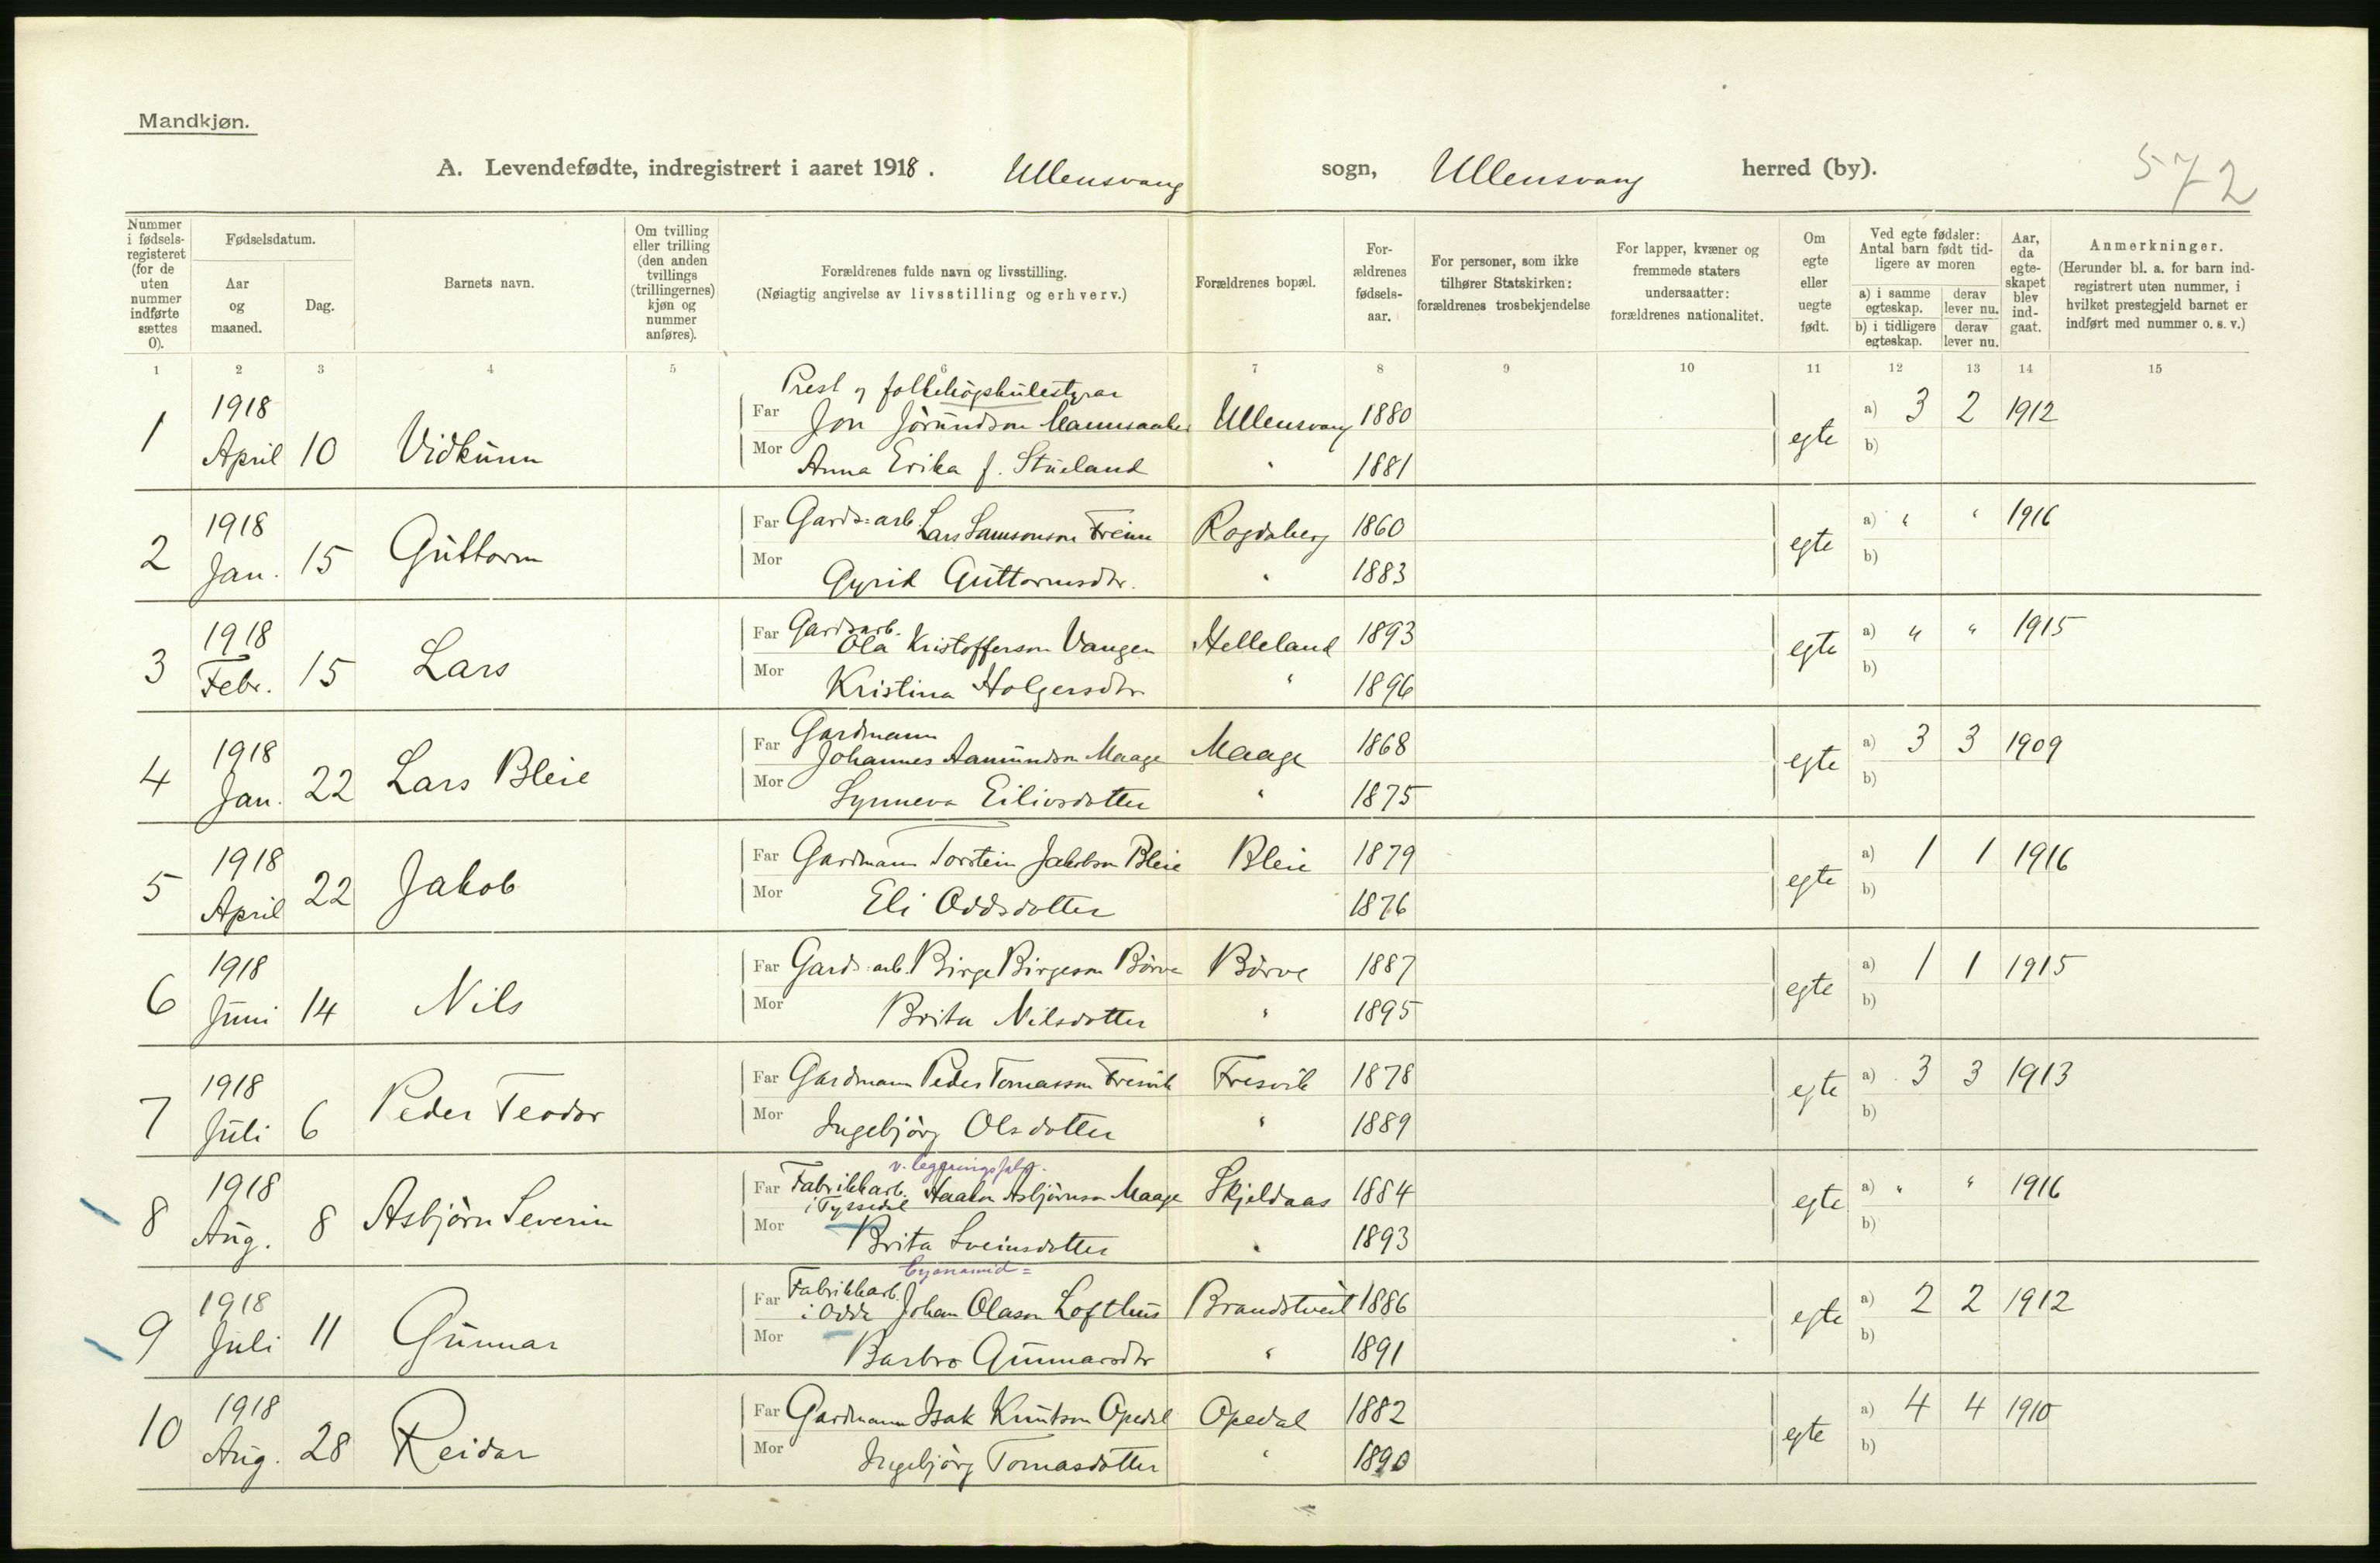 Mandkjøn.
A. Levendefødte, indregistrert i aaret 1918. Ullensvang sogn, Ullensvang herred (by). 572
Nummer i fødsels-registeret (for de uten nummer indførte sættes 0).
Fødselsdatum.
Aar og maaned.
Dag.
Barnets navn.
Om tvilling eller trilling (den anden tvillings (trillingernes) kjøn og nummer anføres).
Forældrenes fulde navn og livsstilling.
(Nøiagtig angivelse av livsstilling og erhverv.)
Forældrenes bopæl.
For-ældrenes fødsels-aar.
For personer, som ikke tilhører Statskirken: forældrenes trosbekjendelse
For lapper, kvæner og fremmede staters undersaatter: forældrenes nationalitet.
Om egte eller uegte født.
Ved egte fødsler: Antal barn født tid-ligere av moren
a) i samme egteskap. derav lever nu.
b) i tidligere egteskap. derav lever nu.
Aar, da egte-skapet blev ind-gaat.
Anmerkninger.
(Herunder bl. a. for barn ind-registrert uten nummer, i hvilket prestegjeld barnet er indført med nummer o. s. v.)
1 2 3 4 5 6 7 8 9 10 11 12 13 14 15
Prest og folkehögskulestyrar
1 1918 April 10 Vidkunn Far Jon Jörundson Mannsaaker Ullensvang 1880 egte a) 3 2 1912
Mor Anna Erika f. Stueland " 1881 b)
2 1918 Jan. 15 Guttorm Far Gards=arb. Lars Samsonson Freim Rogdaberg 1860 egte a) " " 1916
Mor Gyrid Guttormsdtr. " 1883 b)
3 1918 Febr. 15 Lars Far Gardsarb. Ola Kristofferson Vangen Helleland 1893 egte a) " " 1915
Mor Kristina Holgersdtr " 1896 b)
4 1918 Jan. 22 Lars Bleie Far Gardmann Johannes Aamundson Maage Maage 1868 egte a) 3 3 1909
Mor Synneva Eilivsdotter " 1875 b)
5 1918 April 22 Jakob Far Gardmann Torstein Jakobson Bleie Bleie 1879 egte a) 1 1 1916
Mor Eli Oddsdotter 1876 b)
6 1918 Juni 14 Nils Far Gards=arb. Birge Birgeson Börve Börve 1887 egte a) 1 1 1915
Mor Brita Nilsdotter " 1895 b)
7 1918 Juli 6 Peder Teodor Far Gardmann Peder Tomasson Fresvik Fresvik 1878 egte a) 3 3 1913
Mor Ingebjörg Olsdotter " 1889 b)
8 1918 Aug. 8 Asbjörn Severin Far Fabrikkarb. i Tyssedal Haakon Asbjörnson Maage Skjeldaas 1884 egte a) " " 1916
Mor Brita Sveinsdotter " 1893 b)
cyanamid=
9 1918 Juli 11 Gunnar Far Fabrikkarb. i Odda Johan Olason Lofthus Brandstveit 1886 egte a) 2 2 1912
Mor Barbro Gunnarsdtr " 1891 b)
10 1918 Aug. 28 Reidar Far Gardmann Isak Knutson Opedal Opedal 1882 egte a) 4 4 1910
Mor Ingebjörg Tomasdotter " 1890 b)